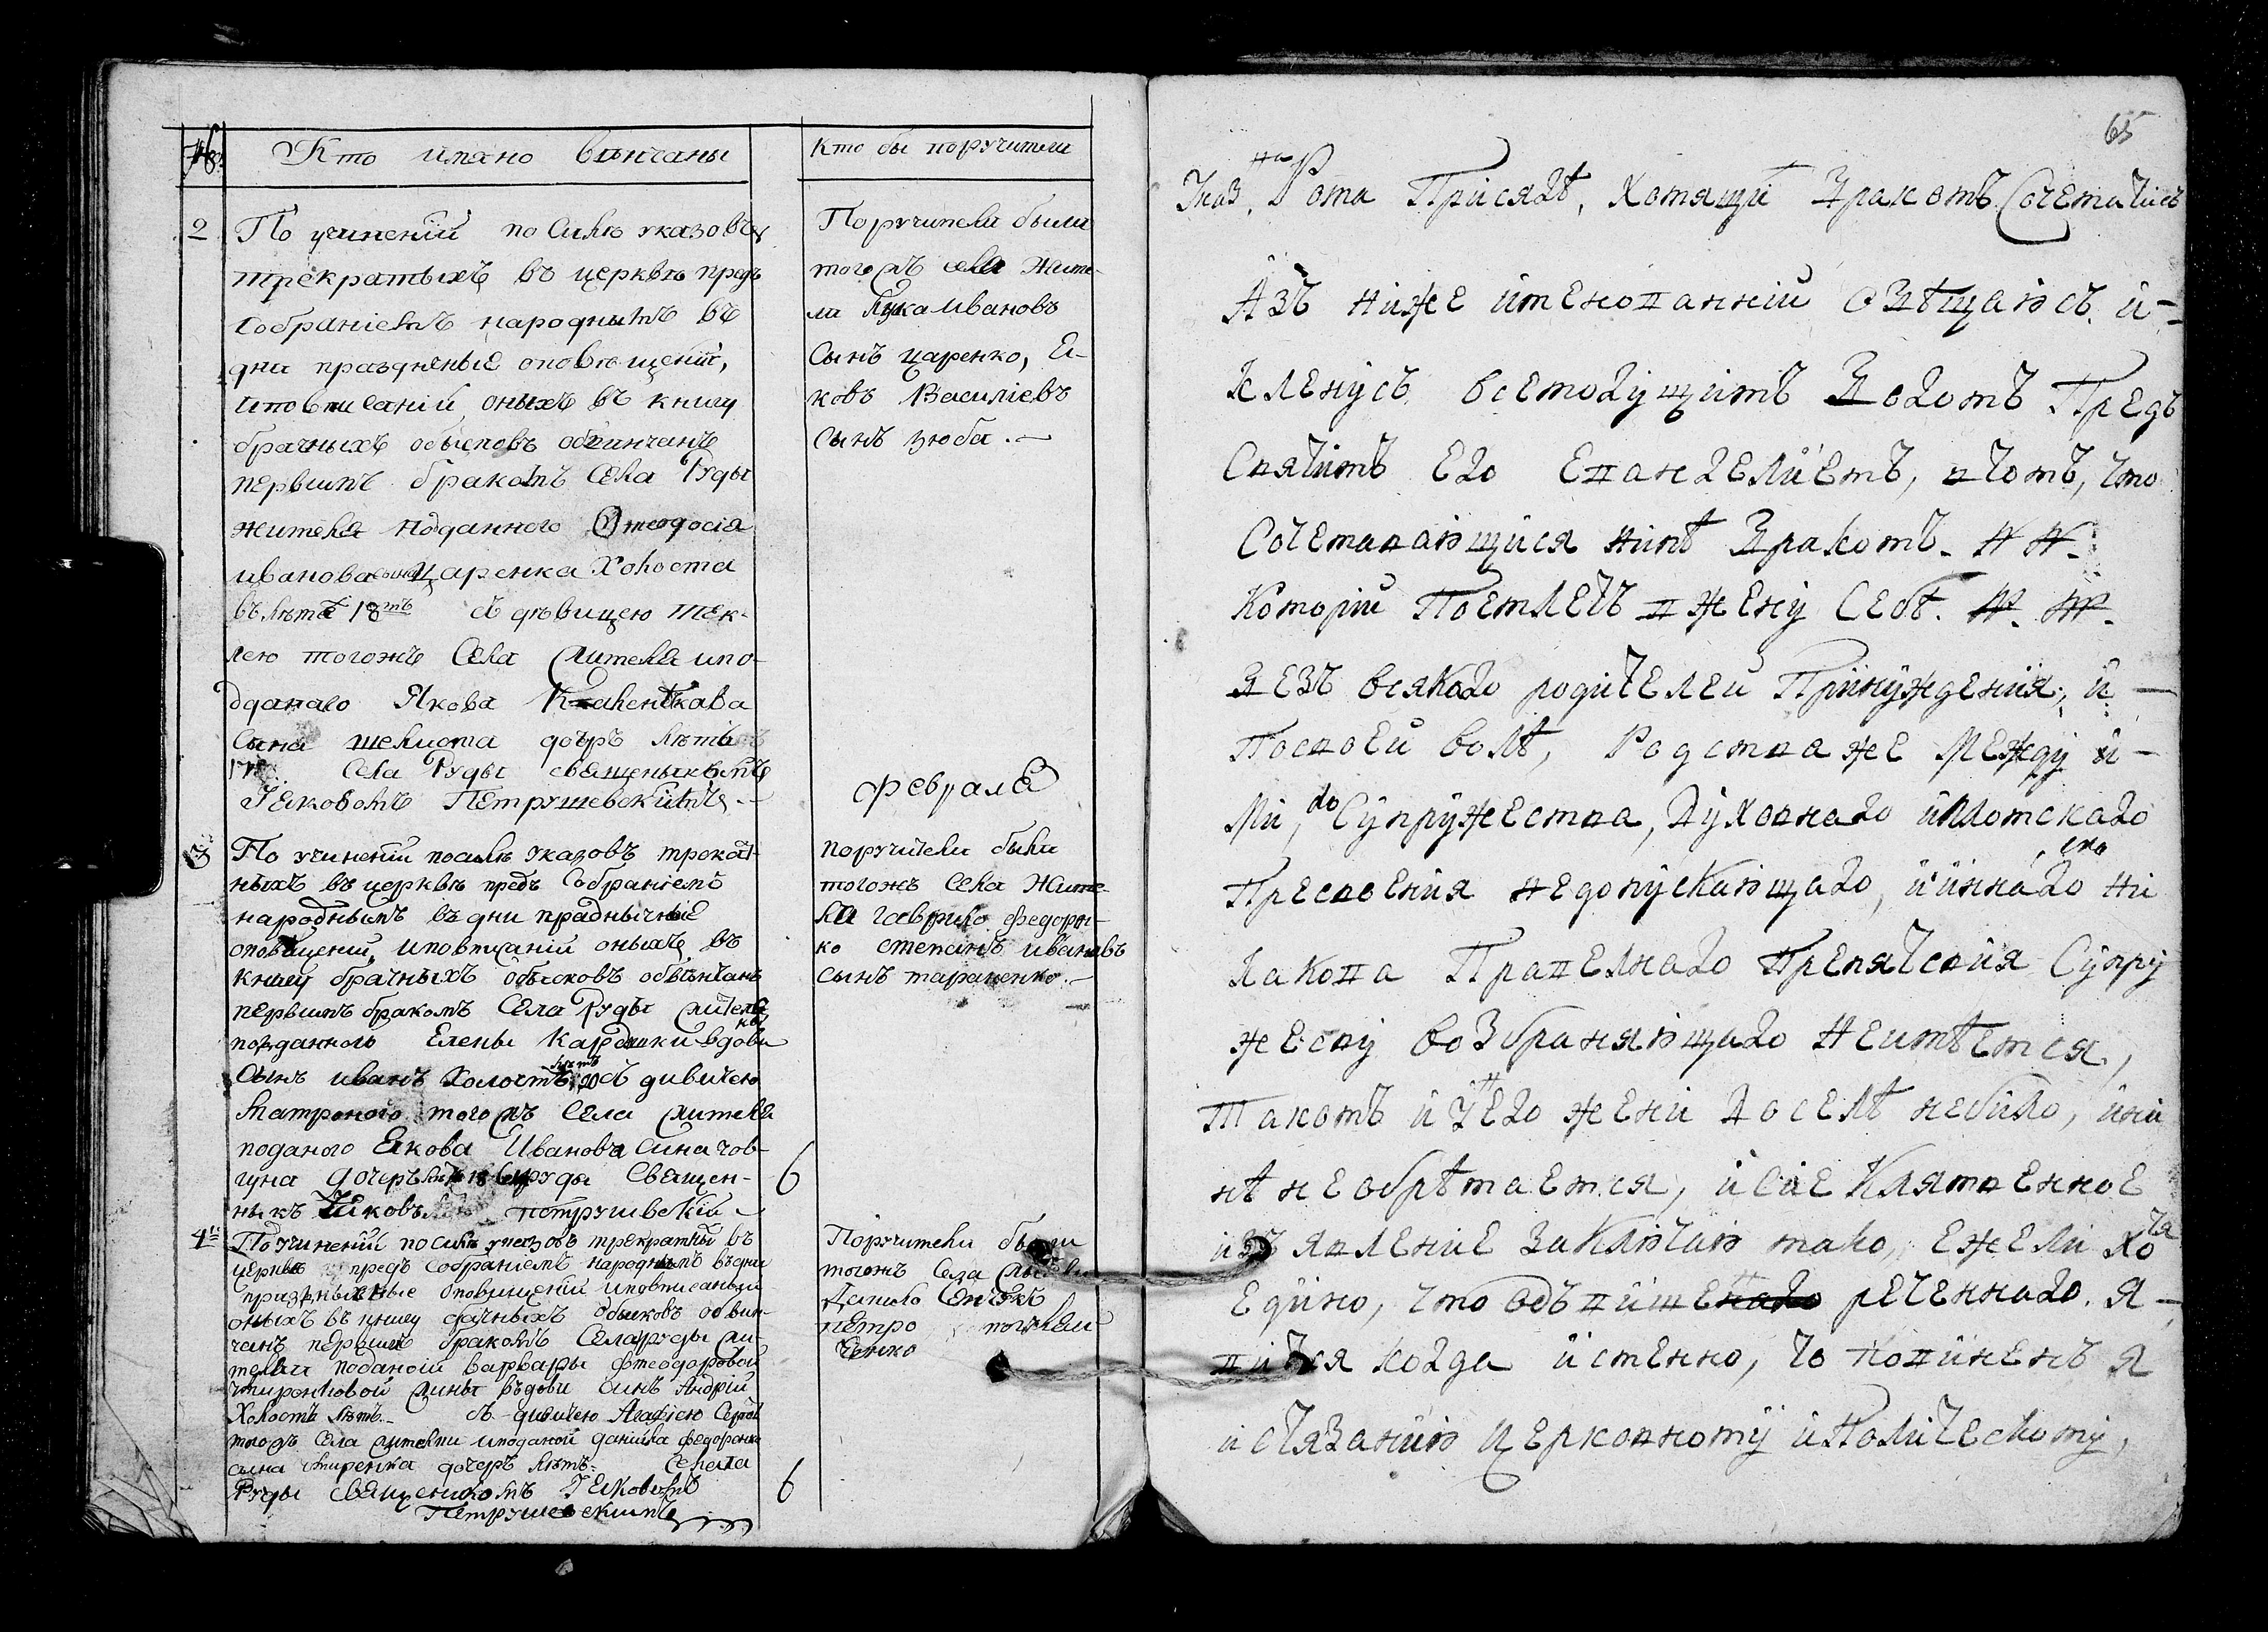 №
Кто имяно венчаны
Кто бы поручители
2
По учинений по силѣ указовъ
трекратыхъ въ церквѣ предъ
собраніемъ народнымъ въ
дни праздненые оповѣщеній,
иповписаній оныхъ въ книгу
брачныхъ обысковъ обвинчанъ
первимъ бракомъ Села Руды
жителя подданного Өтеодосія
иванова сына Царенка Холоста
въ лѣтѣ 18тъ съ дѣвицею тек-
лею тогожъ Села жителя ипо-
дданаго Якова
Сына шелиота дочръ лѣтъ
17 Села Руды священыкомъ
Іеяковомъ Петрушевскимъ.
Поручители были
тогожъ села жите-
ли Лука Ивановъ
Сынъ царенко, Ея-
ковъ Василіевъ
Сынъ зюба.
февраля
3
По учинений посилѣ указовъ трекат-
ныхъ въ церквѣ предъ Собраніемъ
народнымъ въ дни прадничные
оповѣщений, иповписаний оныхъ въ
книгу брачныхъ обысковъ обвѣнчанъ
первимъ бракомъ Села Руды жителя
подданного Елены вдовы
Сынъ иванъ Холостъ лѣтъ 20 съ дивицею
Матроною тогожъ Села жителя
поданого Еякова Иванова Сина гов-
гуна дочеръ лѣтъ 18 Села Руды Священ-
никъ Іеяковъ петрушевскій
6
поручители были
тогожъ Села Жите-
ли гаврило федорен-
ко степанъ ивановъ
сынъ тараненко.
4й
По учинений по силѣ указовъ трекратны въ
церквѣ предъ Собраніемъ народнымъ въ дни
празничные оповищений иповписаныи
оныхъ въ книгу брачныхъ обысковъ обвин-
чанъ первимъ бракомъ Села Руды жи-
телки поданой варвары Өтеодоровой
жины вьдови Синъ Андрій
Холостъ лѣтъ съ дивицею Агафіею
тогожъ Села жители иподаной данила федоренка
сына дочеръ лѣтъ. Села
Руды Священикомъ Іеяковомъ
Петрушевскимъ
6
Поручители были
тогожъ Села жители
Данило
петро
ченко
65
Указ. на Рота Присягѣ, Хотящи Бракомъ Сочетатись
Азъ ниже именованній обѣщаюсъ, и
кленусъ всемогущимъ Богомъ Предъ
Святимъ Его Евангеліемъ, вътомъ, что
Сочетавающійся нинѣ Бракомъ N N
Которій Поемлетъ в жену Себѣ. N. N.
безъ всякого родителей Принужденія, и
Посвоей волѣ, Родства же между и-
ми, до Супружества, Духовнаго иплотскаго
Присвоенія недопускающаго, ииннаго ни
яакова Правелнаго препятсвія Супру
жесву возбраняющаго неимѣется,
такожъ и унего жени доселѣ небило, ини
нѣ необрѣтается, исіе Клятвенное
изъявленіе заключаю тако, ежели хотя
едино, что одъ вишеннаго реченнаго. я-
вится когда истенно, то повиненъ я
истязанію церковному иполитескому,